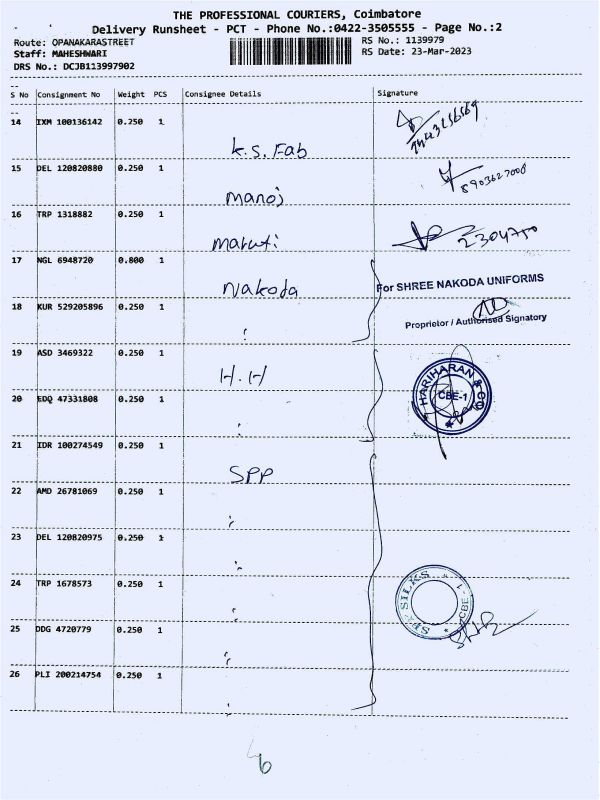 THE PROFESSIONAL COURIERS, Coimbatore
Delivery Runsheet - PCT - Phone No.:0422-3505555 - Page No.:2
Route: OPANAKARASTREET RS No.: 1139979
Staff: MAHESHWARI RS Date: 23-Mar-2023
DRS No.: DCJB113997902
S No Consignment No Weight PCS Consignee Details Signature
14 IXM 100136142 0.250 1
K.S. Fab
15 DEL 120820880 0.250 1
8903627008
Manoj
16 TRP 1318882 0.250 1
2304750
Maruti
17 NGL 6948720 0.800 1
Nakoda
For SHREE NAKODA UNIFORMS
18 KUR 529205896 0.250 1
Proprietor / Authorised Signatory
19 ASD 3469322 0.250 1
H.H
HARIHARAN & CO
CBE-1
20 EDQ 47331808 0.250 1
21 IDR 100274549 0.250 1
SPP
22 AMD 26781069 0.250 1
23 DEL 120820975 0.250 1
24 TRP 1678573 0.250 1
SILKS
CBE-1
25 DDG 4720779 0.250 1
26 PLI 200214754 0.250 1